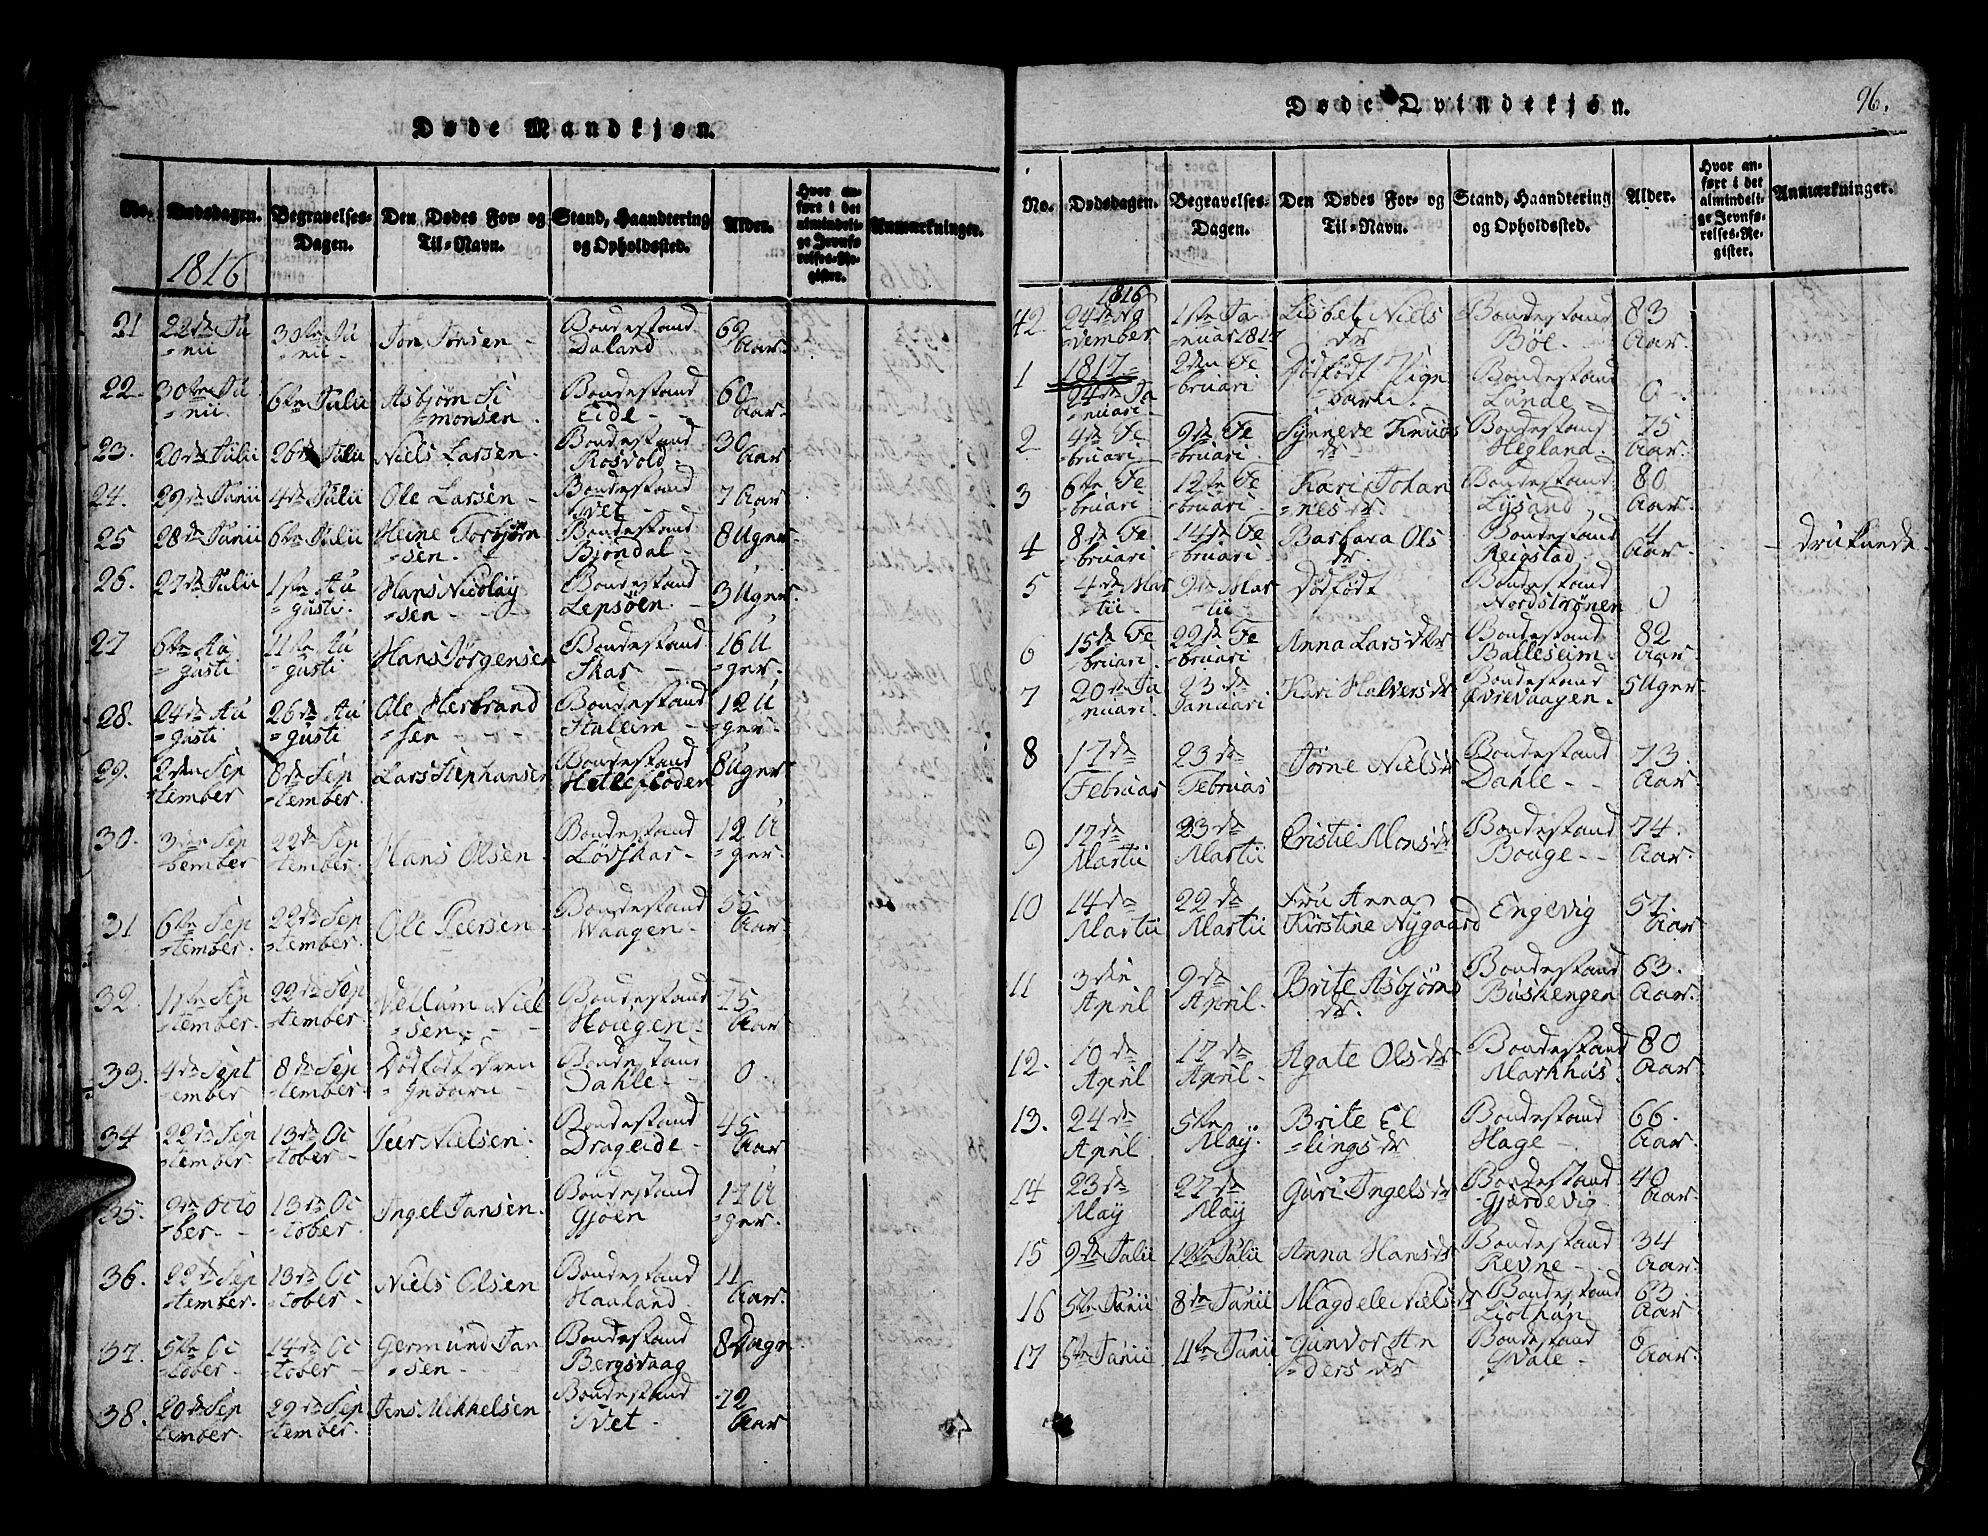 Døde Mandkjøn.
No. Dødsdagen. Begravelses-Dagen. Den Dødes For- og Til-Navn. Stand, Haandtering og Opholdssted. Alder. Hvor anført i det almindelige Jevnførelses-Register. Anmærkninger.
1816
21 22de Ju=nii 30te Ju=nii Jon Jonsen Bondestand Daland 69 Aar
22. 30te Ju=nii 6te Julii Asbjørn Si=monsen Bondestand Eide 60 Aar
23. 20de Julii 26de Julii Niels Larsen Bondestand Rosvold 30 Aar
24. 29de Junii 4de Julii Ole Larsen Bondestand Tvet 7 Aar
25 28de Junii 6te Julii Heine Torbjørn=sen Bondestand Bjondal 8 Uger
26. 27de Julii 1ste Au=gusti Hans Nicolay=sen Bondestand Lepsöen 3 Uger
27 6te Au=gusti 11te Au=gusti Hans Jørgensen Bondestand Skar 16 U=ger
28. 24de Au=gusti 26de Au=gusti Ole Herbrand=sen Bondestand Staleim 12 U=ger
29. 2den Sep=tember 8de Sep=tember Lars Stephansen Bondestand Hettefloden 8 Uger
30. 3die Sep=tember 22de Sep=tember Hans Olsen Bondestand Lødskar 12 U=ger
31 6te Sep=tember 22de Sep=tember Ole Peersen Bondestand Waagen 55 Aar
32. 11te Sep=tember 22de Sep=tember Vellum Niel=sen Bondestand Hougen 75 Aar
33. 4de Sept=ember 8de Sep=tember Dödfödt Dren=gebarn Bondestand Dahle 0
34 22de Sep=tember 13de Oc=tober Peer Nielsen Bondestand Drageide 45 Aar
35. 2de Octo=ber 13de Oc=tober Ingel Jansen Bondestand Gjöen 17 U=ger
36. 22de Sep=tember 13de Oc=tober Niels Olsen Bondestand Haaland 11 Aar
37. 5te Oc=tober 14de Oc=tober Germund Jan=sen Bondestand Bergsvaag 8 Dage
38. 20de Sep=tember 29de Sep=tember Jens Mikkelsen Bondestand Tvet 72 Aar
Døde Qvindekjøn.
96.
No. Dødsdagen. Begravelses-Dagen. Den Dødes For- og Til-Navn. Stand, Haandtering og Opholdssted. Alder. Hvor anført i det almindelige Jevnførelses-Register. Anmærkninger.
1816
42. 24de No=vember 1ste Ja=nuar 1817 Lisbet Niels dr Bondestand Böe 83 Aar
1817
1 24de Ja=nuari 2den Fe=bruari Dödfödt Pige barn Bondestand Lunde 0
2 4de Fe=bruari 9de Fe=bruari Synneve Knuds dr Bondestand Hegland 75 Aar
3 6te Fe=bruari 12te Fe=bruari Kari Johan=nesdr. Bondestand Lysand 80 Aar
4 8de Fe=bruari 14de Fe=bruari Barbara Ols dr Bondestand Reigstad 4 Aar druknede
5 4de Mar=tii 9de Mar=tii Dödfödt Bondestand Nordströnen 0
6 15de Fe=bruari 22de Fe=bruari Anna Larsdtr Bondestand Balleseim 82 Aar
7 20de Ja=nuari 23de Januari Kari Halversdr Bondestand Øvrevaagen 5 Uger
8 17de Februar 23de Februar Jørne Nielsdr Bondestand Dahle 73. Aar
9 17de Martii 23de Martii Cristie Monsdr Bondestand Bouge 74. Aar
10 14de Martii 22de Martii Fru Anna Kirstine Nygaard Engevig 57. Aar
11 3die April 9de April Brite Asbjørns dr. Bondestand Buskengen 63. Aar
12. 10de April 17de April Agate Olsdr Bondestand Markhus 80 Aar
13. 24de April 5te May Brite El=lingsdr Bondestand Hage 66. Aar
14 23de May 27de May Guri Ingelsdr Bondestand Gjærdevig 40 Aar
15 9de Julii 12te Julii Anna Hansdr Bondestand Revne 34 Aar
16 5te Junii 8de Junii Magdele Nielsdr Bondestand Liothun 63 Aar
17 5te Junii 11te Junii Gunvor An=dersdr Bondestand Qvale 8 Aar